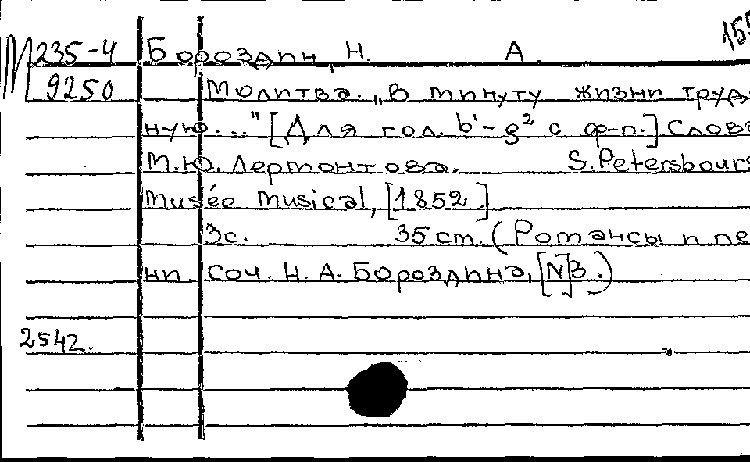 155
М 235-4 Бороздин, Н. А.
9250 Молитва. „В минуту жизни труд
ную..." [Для гол. b'-g² с ф-п.] Слова
М.Ю. Лермонтова. S. Petersbourg
Musée musical, [1852.]
3с. 35 cm. (Романсы и пе
ни соч. Н. А. Бороздина, [N]3.)
2542.